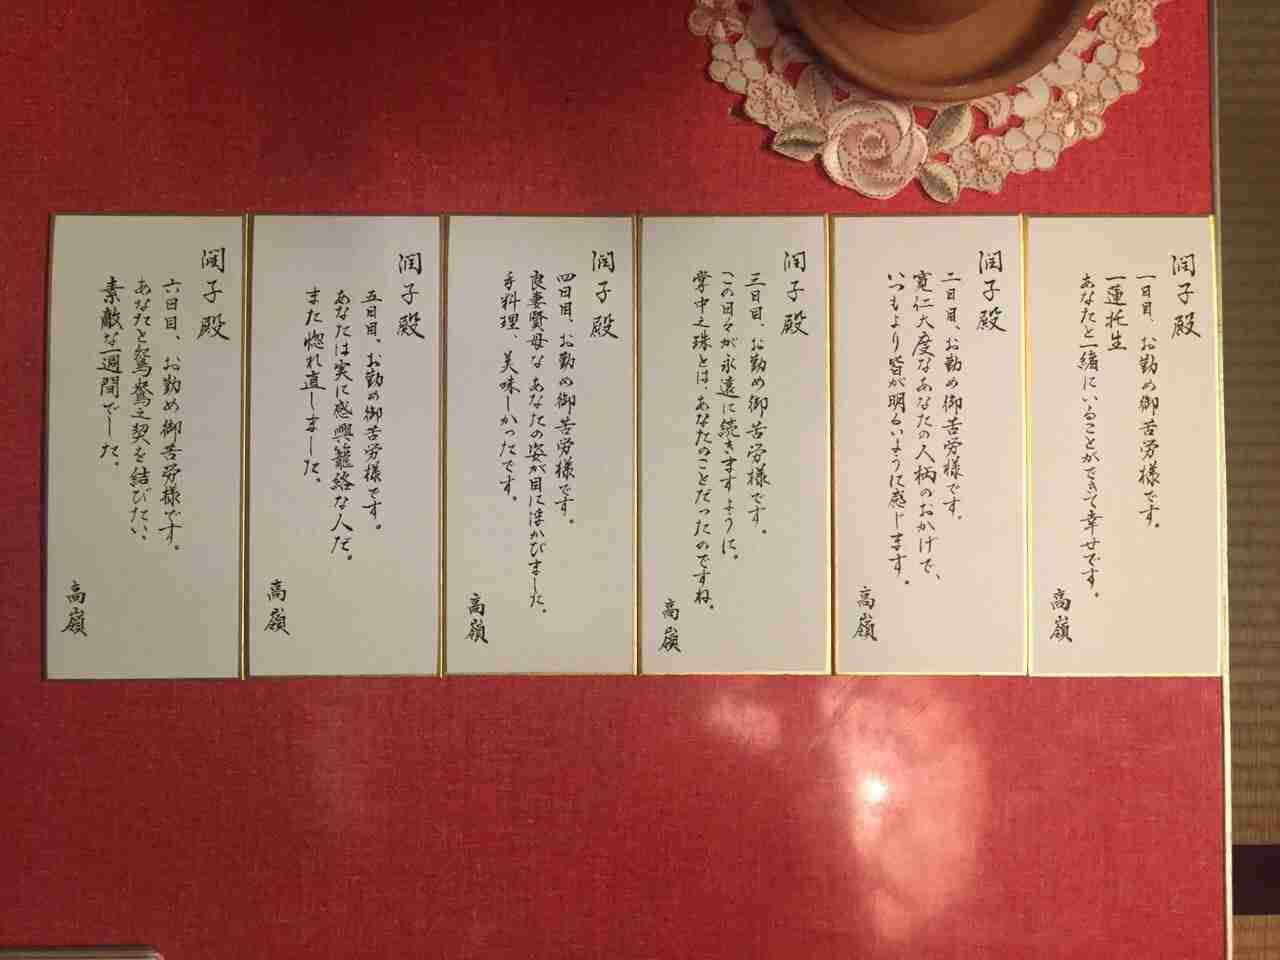 潤子殿
一日目、お勤め御苦労様です。
一蓮托生
あなたと一緒にいることができて幸せです。
高嶺
潤子殿
二日目、お勤め御苦労様です。
寛仁大度なあなたの人柄のおかげで、
いつもより皆が明るいように感じます。
高嶺
潤子殿
三日目、お勤め御苦労様です。
この日々が永遠に続きますように。
掌中之珠とは、あなたのことだったのですね。
高嶺
潤子殿
四日目、お勤め御苦労様です。
良妻賢母なあなたの姿が目に浮かびました。
手料理、美味しかったです。
高嶺
潤子殿
五日目、お勤め御苦労様です。
あなたは実に感興籠絡な人だ。
また惚れ直しました。
高嶺
潤子殿
六日目、お勤め御苦労様です。
あなたと鴛鴦之契を結びたい。
素敵な一週間でした。
高嶺